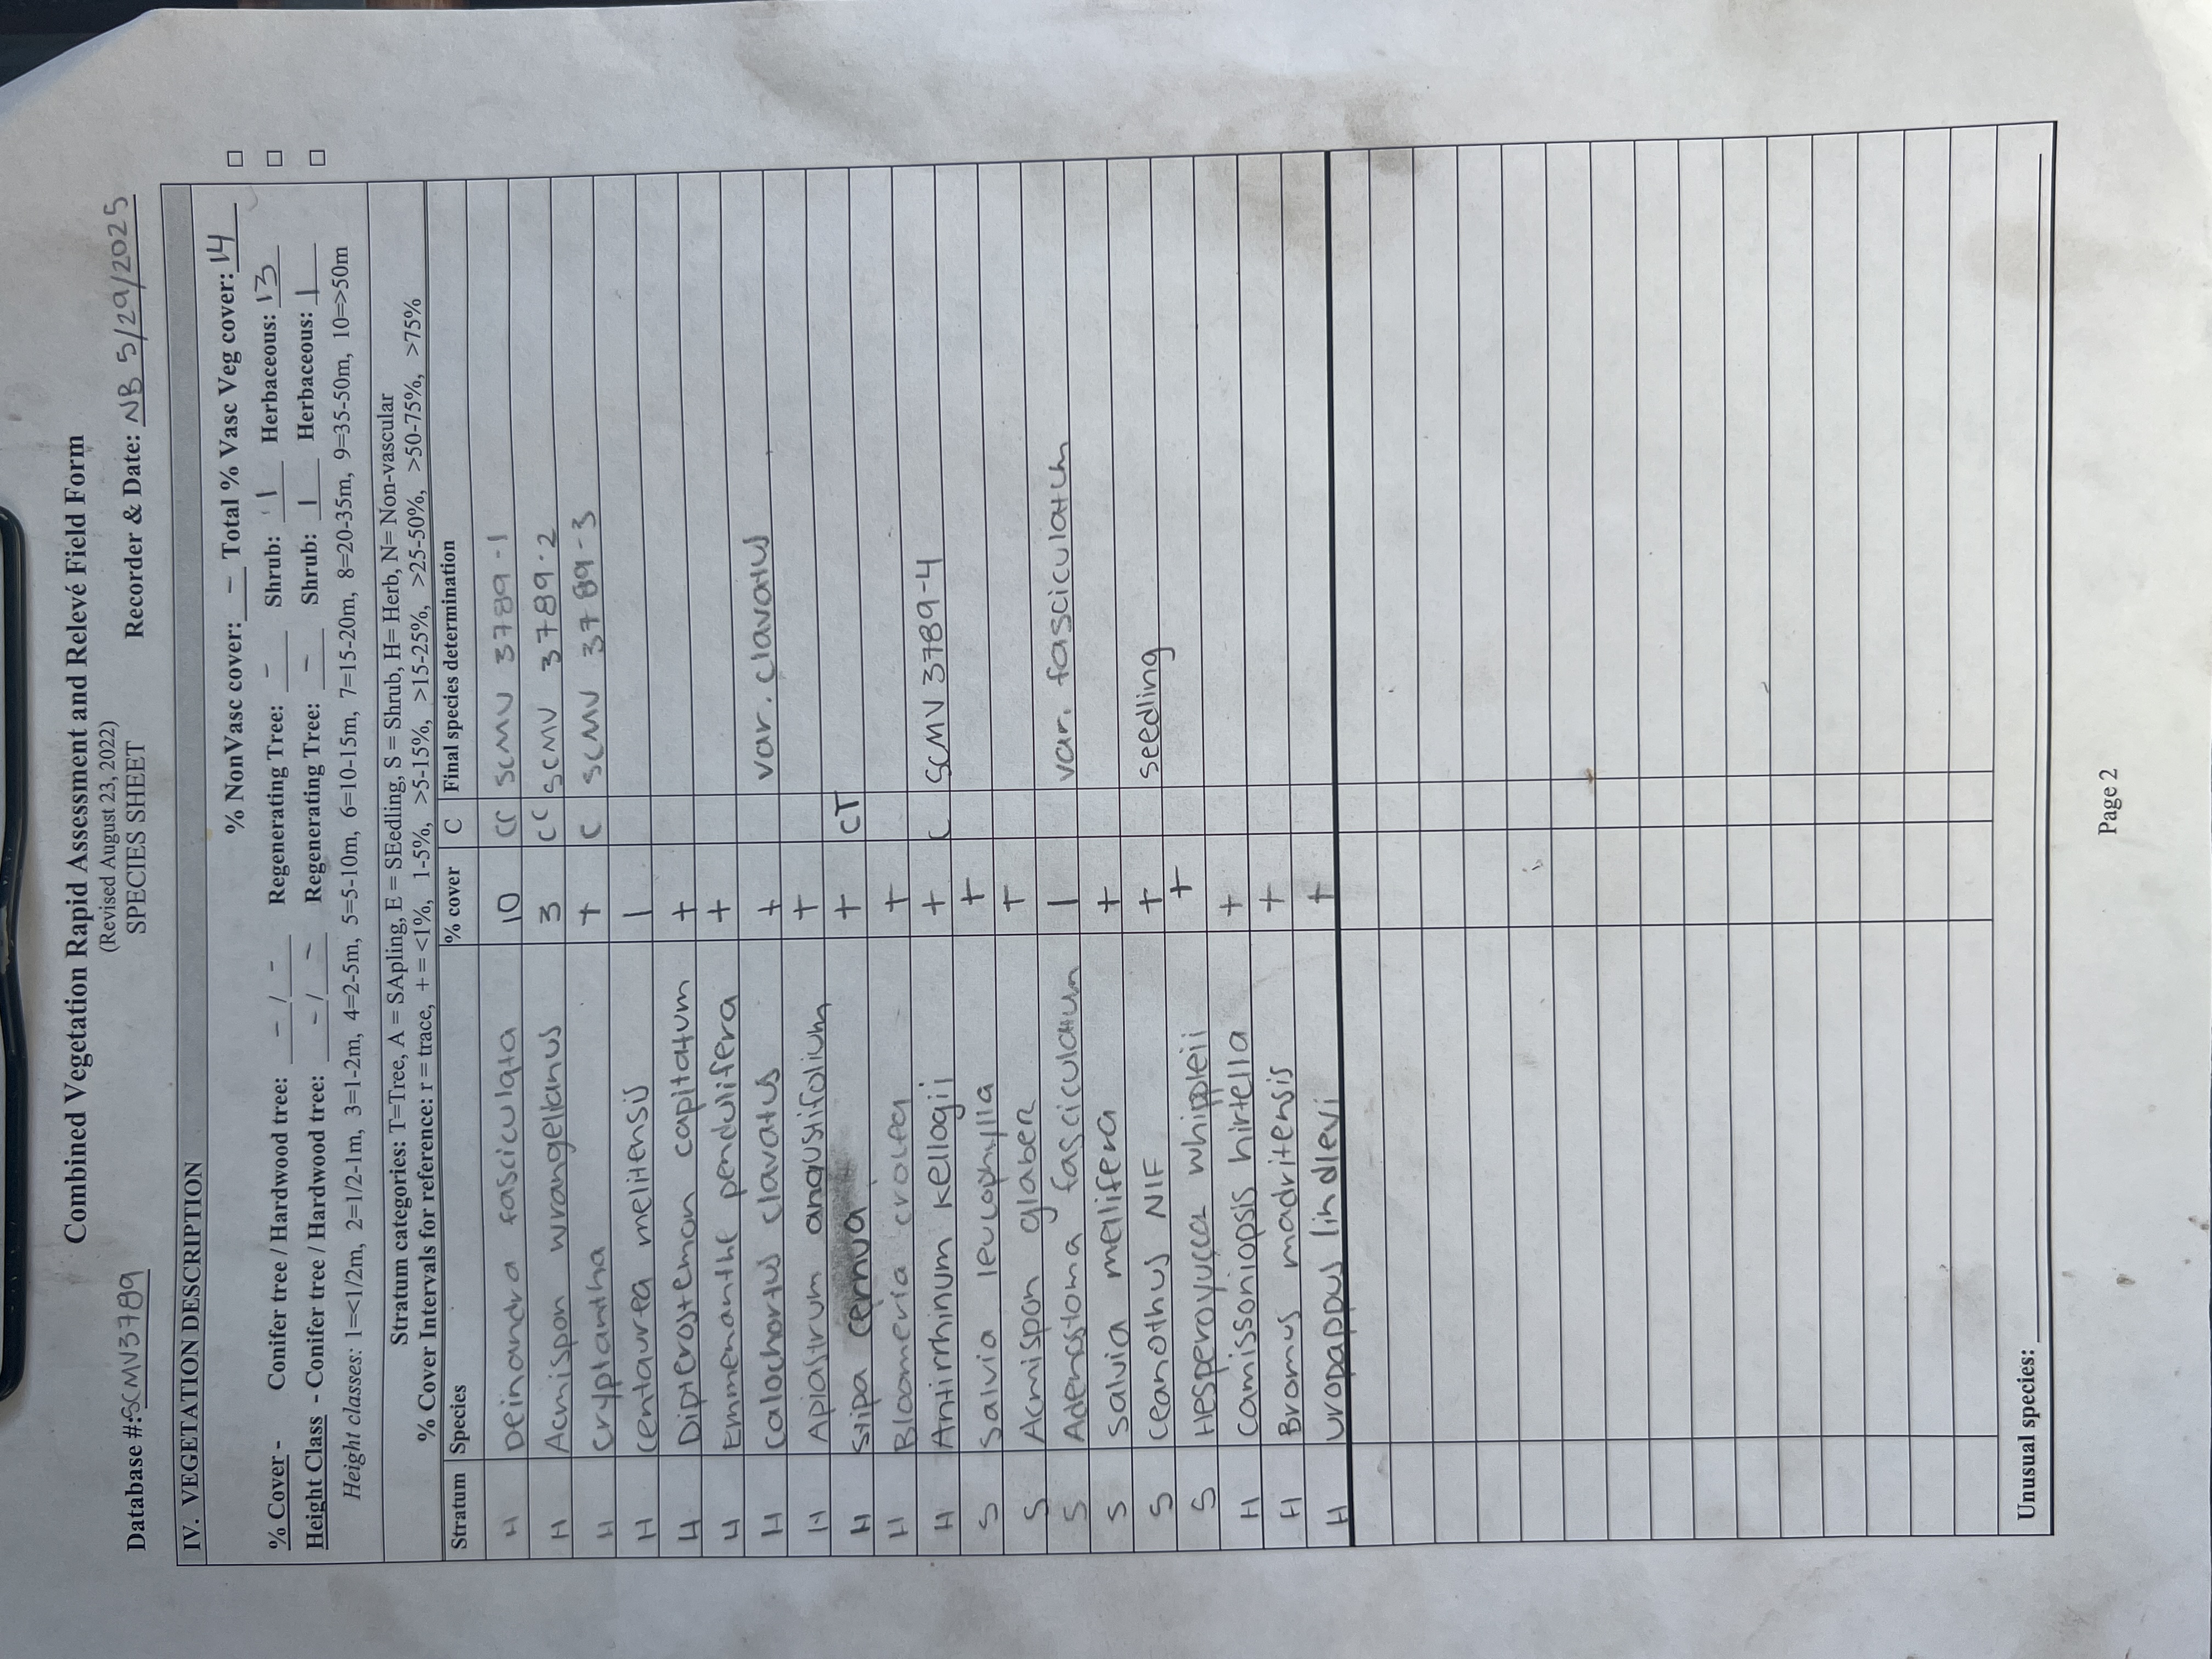 Combined Vegetation Rapid Assessment and Relevé Field Form
(Revised August 23, 2022)
Database #: SCMV3789 SPECIES SHEET Recorder & Date: NB 5/29/2025
IV. VEGETATION DESCRIPTION
% NonVasc cover: - Total % Vasc Veg cover: 14 □
% Cover - Conifer tree / Hardwood tree: - / - Regenerating Tree: - Shrub: 1 Herbaceous: 13 □
Height Class - Conifer tree / Hardwood tree: - / - Regenerating Tree: - Shrub: 1 Herbaceous: 1 □
Height classes: 1=<1/2m, 2=1/2-1m, 3=1-2m, 4=2-5m, 5=5-10m, 6=10-15m, 7=15-20m, 8=20-35m, 9=35-50m, 10=>50m
Stratum categories: T=Tree, A = SApling, E = SEedling, S = Shrub, H= Herb, N= Non-vascular
% Cover Intervals for reference: r = trace, + = <1%, 1-5%, >5-15%, >15-25%, >25-50%, >50-75%, >75%
Stratum Species % cover C Final species determination
H Deinandra fasciculata 10 CC SCMV 3789-1
H Acmispon wrangelianus 3 CC SCMV 3789-2
H Cryptantha + C SCMV 3789-3
H Centaurea melitensis 1
H Dipterostemon capitatum +
H Emmenanthe pendulifera +
H Calochortus clavatus + var. clavatus
H Apiastrum angustifolium +
H Stipa cernua + CT
H Bloomeria crocea +
H Antirrhinum kellogii + C SCMV 3789-4
S Salvia leucophylla +
S Acmispon glaber +
S Adenostoma fasciculatum 1 var. fasciculatum
S Salvia mellifera +
S Ceanothus NIF + seedling
S Hesperoyucca whipplei +
H Camissoniopsis hirtella +
H Bromus madritensis +
H Uropappus lindleyi +
Unusual species:
Page 2